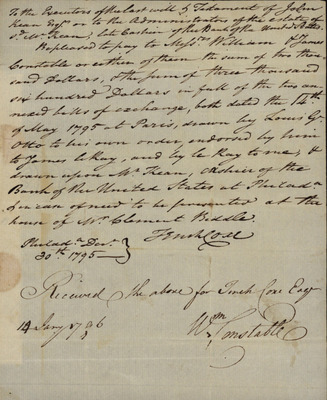 To the Executors of the last will & Testament of John
Kean Esqr. or to the Administrators of the estate of
sd. Mr Kean; late Cashier of the Bank of the United States
Be pleased to pay to Messrs William & James
Constable or either of them the sum of two thou-
sand Dollars, & the sum of three thousand
six hundred Dollars in full of the two an-
nexed bills of exchange, both dated the 14th
of May 1795 at Paris, drawn by Louis G.
Otto to his own order, endorsed by him
to James LeRay, and by Le Ray to me, &
drawn upon Mr Kean, Cashier of the
Bank of the United States at Philada
& in case of need to be presented at the
house of Mr. Clement Biddle.
Tench Coxe
Philada. Decr.
30th 1795
Received the above for Tench Coxe Esqr
14 Jany 1796
Wm Constable